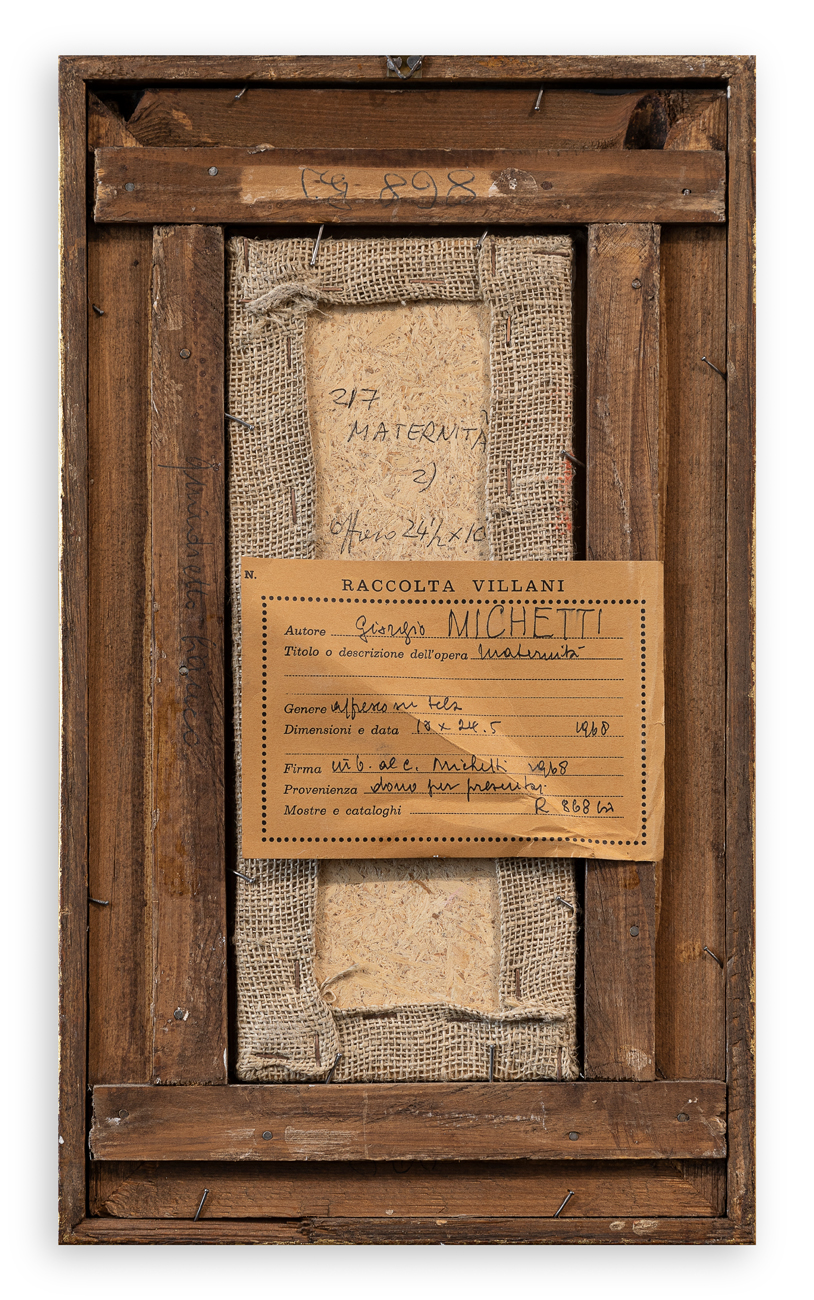 FG-898
217
MATERNITÀ
2)
24½ x 10
N.
RACCOLTA VILLANI
Autore Giorgio MICHETTI
Titolo o descrizione dell'opera Maternità
Genere affresco su tela
Dimensioni e data 10 x 24.5 1968
Firma in b. al c. Michetti 1968
Provenienza dono per
Mostre e cataloghi R 868